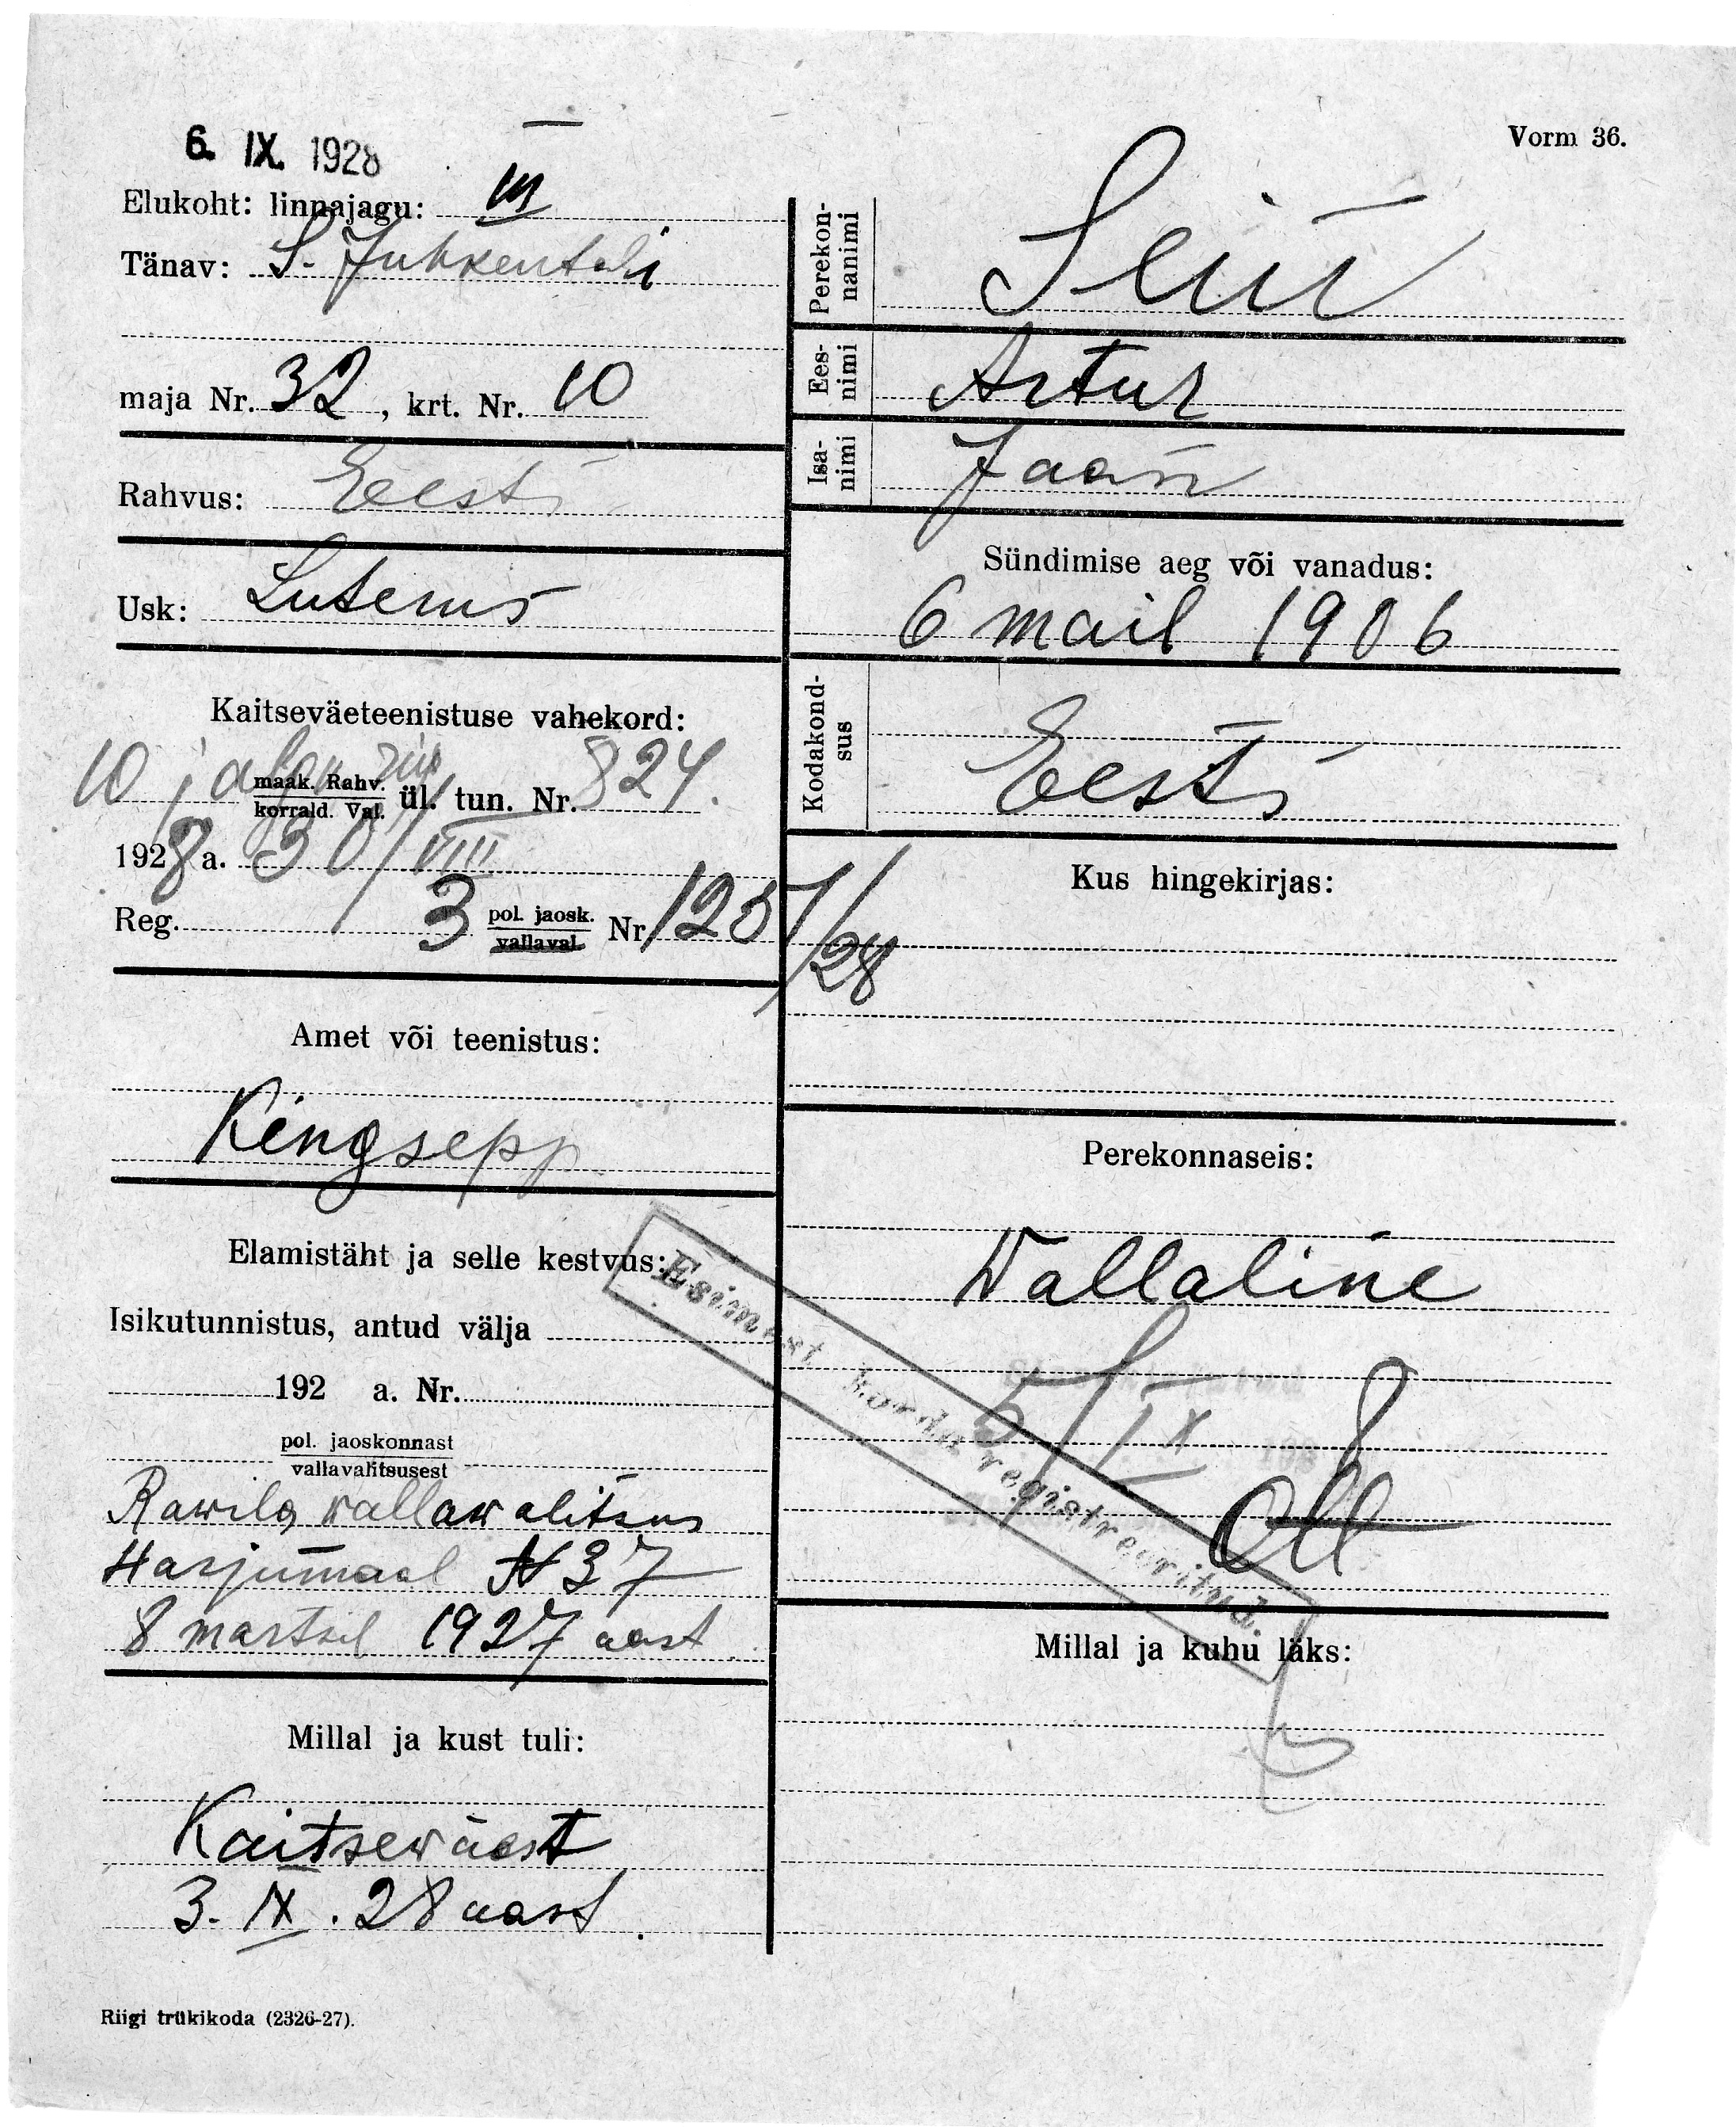 6. IX. 1928
Vorm 36.
Elukoht: linnajagu: III
Tänav: S. Juhkentali
maja Nr. 32, krt. Nr. 10
Rahvus: Eesti
Usk: Luterus
Kaitseväeteenistuse vahekord:
10 maak. Rahv. korrald. Val. ül. tun. Nr. 824.
1928 a. 30/VIII
Reg. 3 pol. jaosk. vallaval. Nr 1237/28
Amet või teenistus:
Kingsepp
Elamistäht ja selle kestvus:
Isikutunnistus, antud välja
192 a. Nr.
pol. jaoskonnast
vallavalitsusest
Rawila wallawalitsus
Harjumaal N 37
8 martsil 1927 aast
Millal ja kust tuli:
Kaitsewäest
3. IX. 28 aast.
Riigi trükikoda (2326-27).
Perekonnanimi
Eesnimi Artur
Isanimi Jaan
Sündimise aeg või vanadus:
6 mail 1906
Kodakondsus Eesti
Kus hingekirjas:
Perekonnaseis:
Wallaline
5/IX 8
Esimest korda registreeritud.
Millal ja kuhu läks: